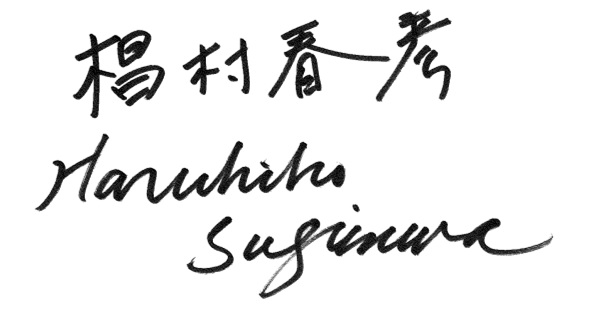 椙村春彦
Haruhiko
Sugimura